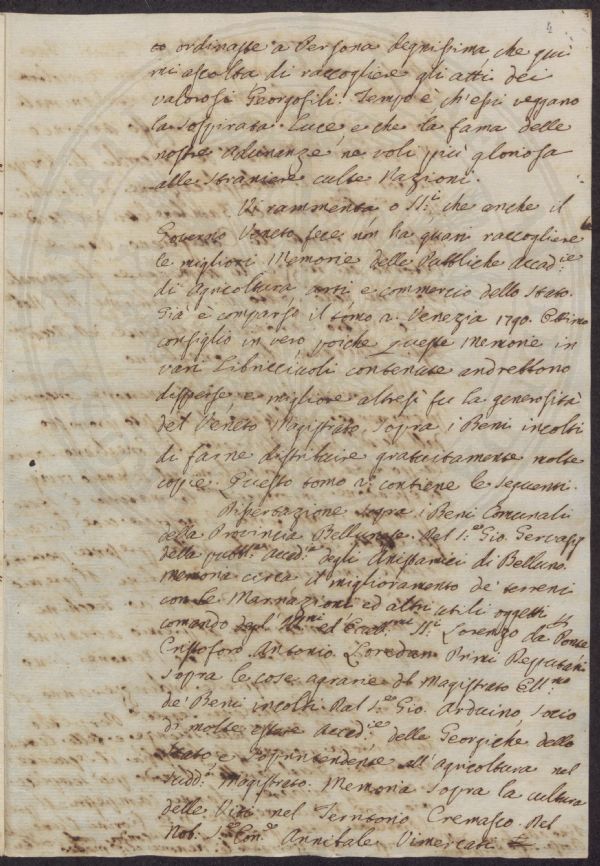 4
to ordinaste a Persona degnissima, che qui
mi ascolta di raccogliere gli atti dei
valorosi Georgofili. Tempo è ch'essi veggano
la sospirata Luce, e che la fama delle
nostre Adunanze ne voli più gloriosa
alle straniere culte Nazioni.
Vi rammenta o SS.i che anche il
Governo Veneto fece non ha guari raccogliere
le migliori Memorie delle Pubbliche Accad.ie
di Agricoltura arti e commercio dello Stato.
Già è comparso il tomo 2. Venezia 1790. Ottimo
consiglio in vero poiche queste memorie in
vari Libricciuoli contenute andrebbono
disperse, e migliore altresì fu la generosità
del Veneto Magistrato sopra i Beni incolti
di farne distribuire gratuitamente molte
copie. Questo tomo 2. contiene le seguenti.
Dissertazione sopra i Beni Comunali
della Provincia Bellunese. Del S.r Gio. Gervasj
della pubb.ca accad.a degli Anistamici di Belluno.
Memoria circa il miglioramento de' terreni
con le Marnazioni ed altri utili oggetti
comando degl' Ill.mi ed Ecc.mi SS.i Lorenzo da Ponte
Cristoforo Antonio Loredan Primi Deputati
sopra le cose agrarie del Magistrato Ecc.mo
de' Beni incolti. Dal S.r Gio. Arduino, socio
di molte estere Accad.ie delle Georgiche dello
Stato, e Soprintendente all'agricoltura nel
sudd.o Magistrato. Memoria sopra la cultura
delle Viti nel Territorio Cremasco. Del
Nob. S.r Con. Annibale Vimercati